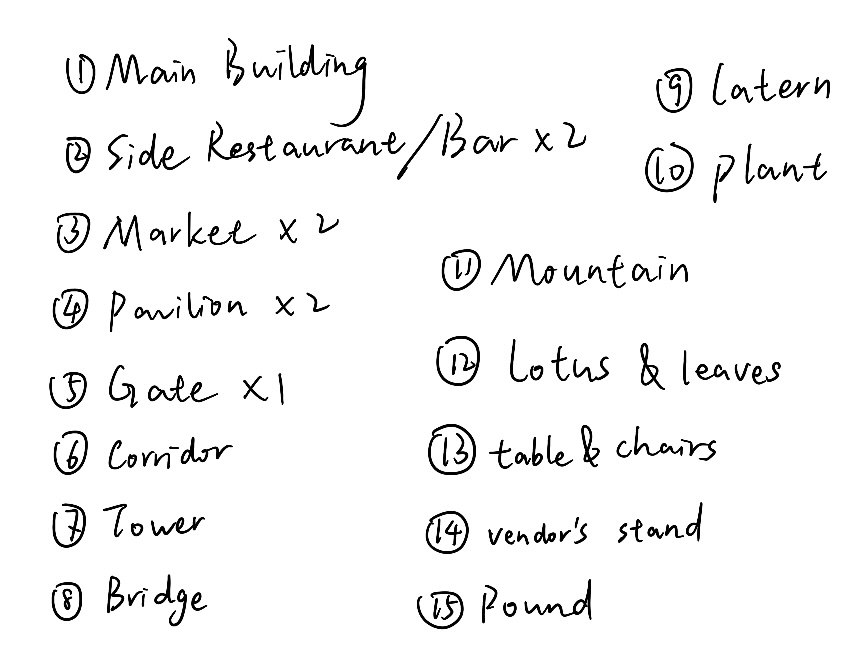 ① Main Building
② Side Restaurant/Bar x 2
③ Market x 2
④ Pavilion x 2
⑤ Gate x 1
⑥ Corridor
⑦ Tower
⑧ Bridge
⑨ latern
⑩ plant
⑪ Mountain
⑫ Lotus & leaves
⑬ table & chairs
⑭ vendor's stand
⑮ Pound